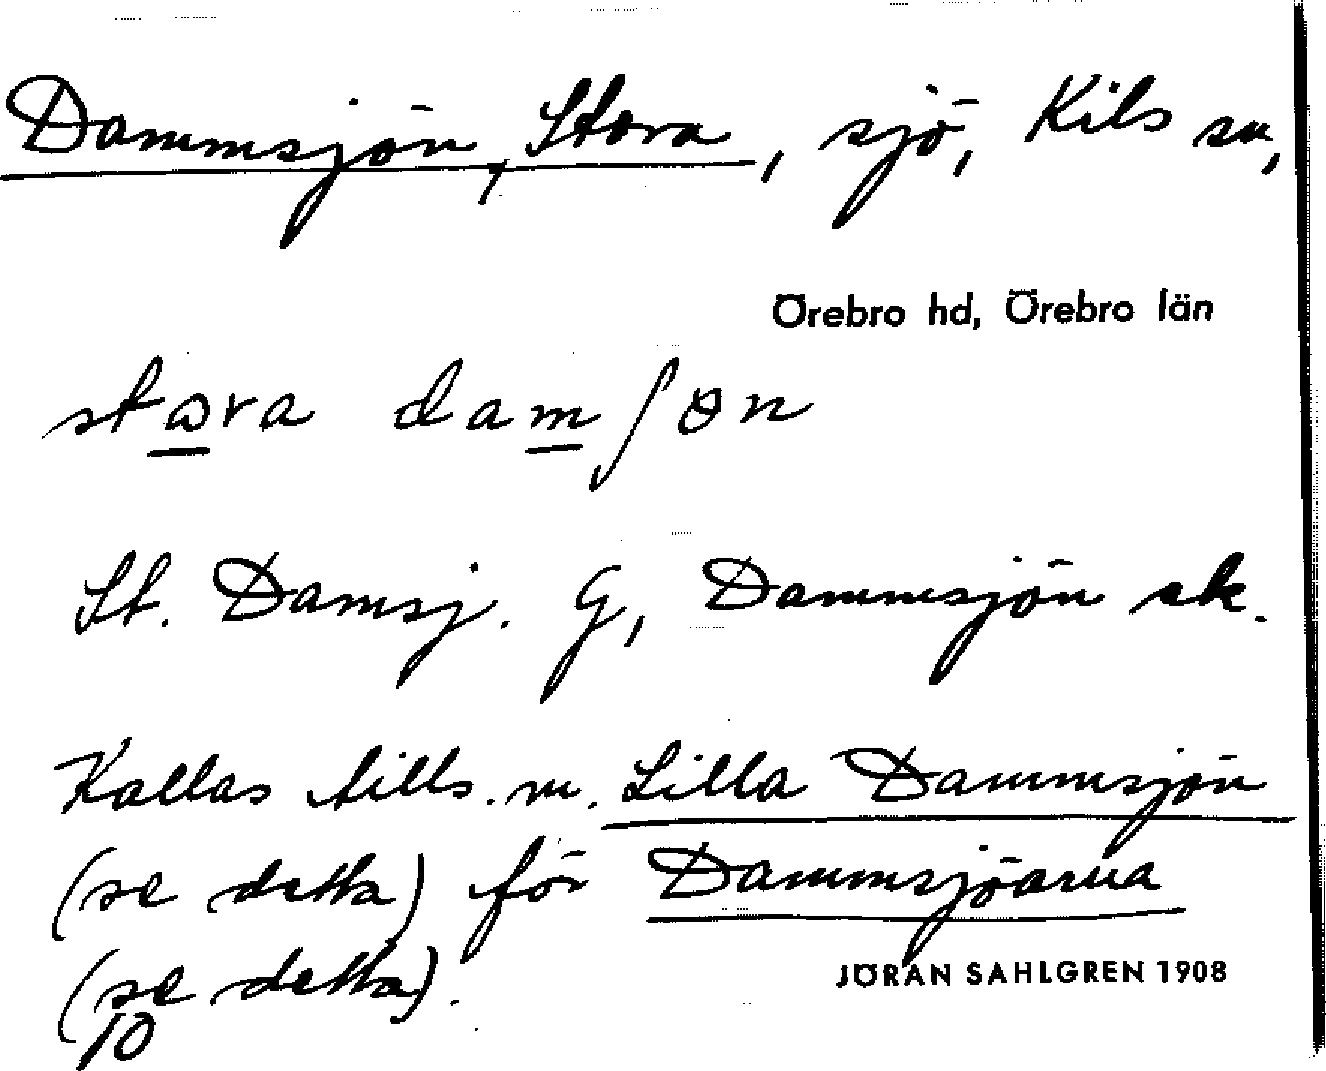 Dammsjön, Stora, sjö, Kils sn,
Örebro hd, Örebro län
stora damʃön
St. Damsj. G, Dammsjön ek.
Kallas tills. m. Lilla Dammsjön
(se detta) för Dammsjöarna
(se detta).
JÖRAN SAHLGREN 1908
10